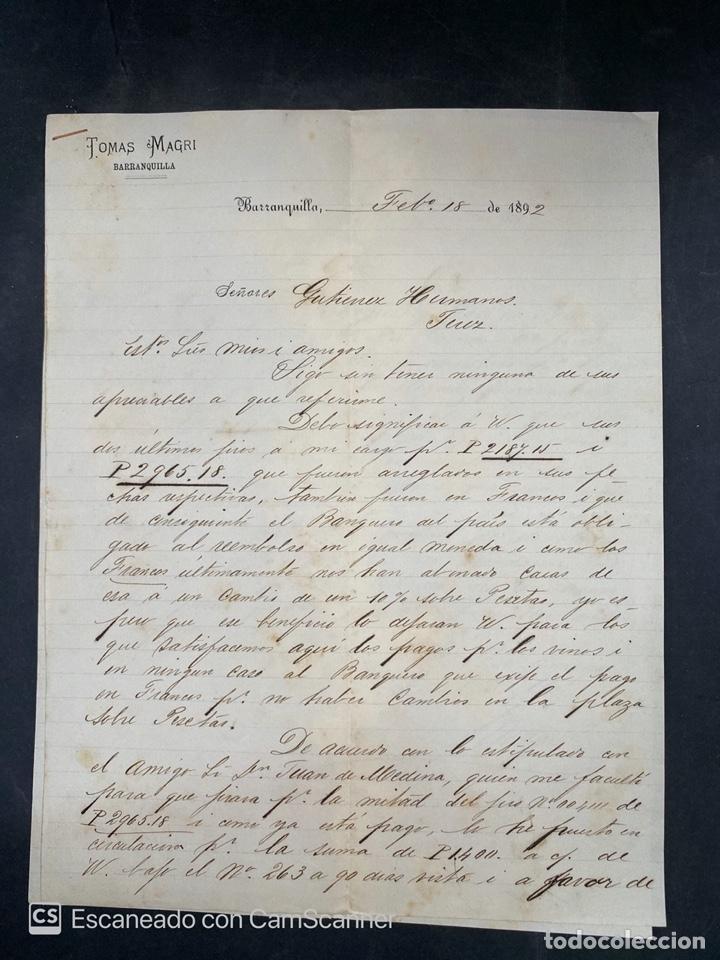 TOMAS MAGRI
BARRANQUILLA
Barranquilla, Febº 18 de 1892
Señores Gutierrez Hermanos.
Jerez.
Estos Sres mios i amigos.
Sigo sin tener ninguna de sus
apreciables a que referirme.
Debo significar á W. que sus
dos últimos jiros á mi cargo pr. P2187.15 i
P2965.18. que fueron arreglados en sus fe
chas respectivas, tambien fueron en Francos i que
de consiguiente el Banquero del país está obli-
gado al reembolso en igual moneda i como los
Francos últimamente nos han abonado casas de
esa á un cambio de un 10% sobre Pesetas, yo es
pero que ese beneficio lo dejaran W. para los
que satisfacemos aquí los pagos pr. los vinos i
en ningun caso al Banquero que exije el pago
en Francos pr. no haber cambios en la plaza
sobre Pesetas.
De acuerdo con lo estipulado con
el amigo Sr Dn. Juan de Medina, quien me facultó
para que jirara pr. la mitad del jiro No. de
P2965.18 i como ya está pago, lo he puesto en
circulacion pr. la suma de P1400. a c/. de
W. bajo el No. 263 a 90 dias vista i a favor de
CS Escaneado con CamScanner
todocoleccion